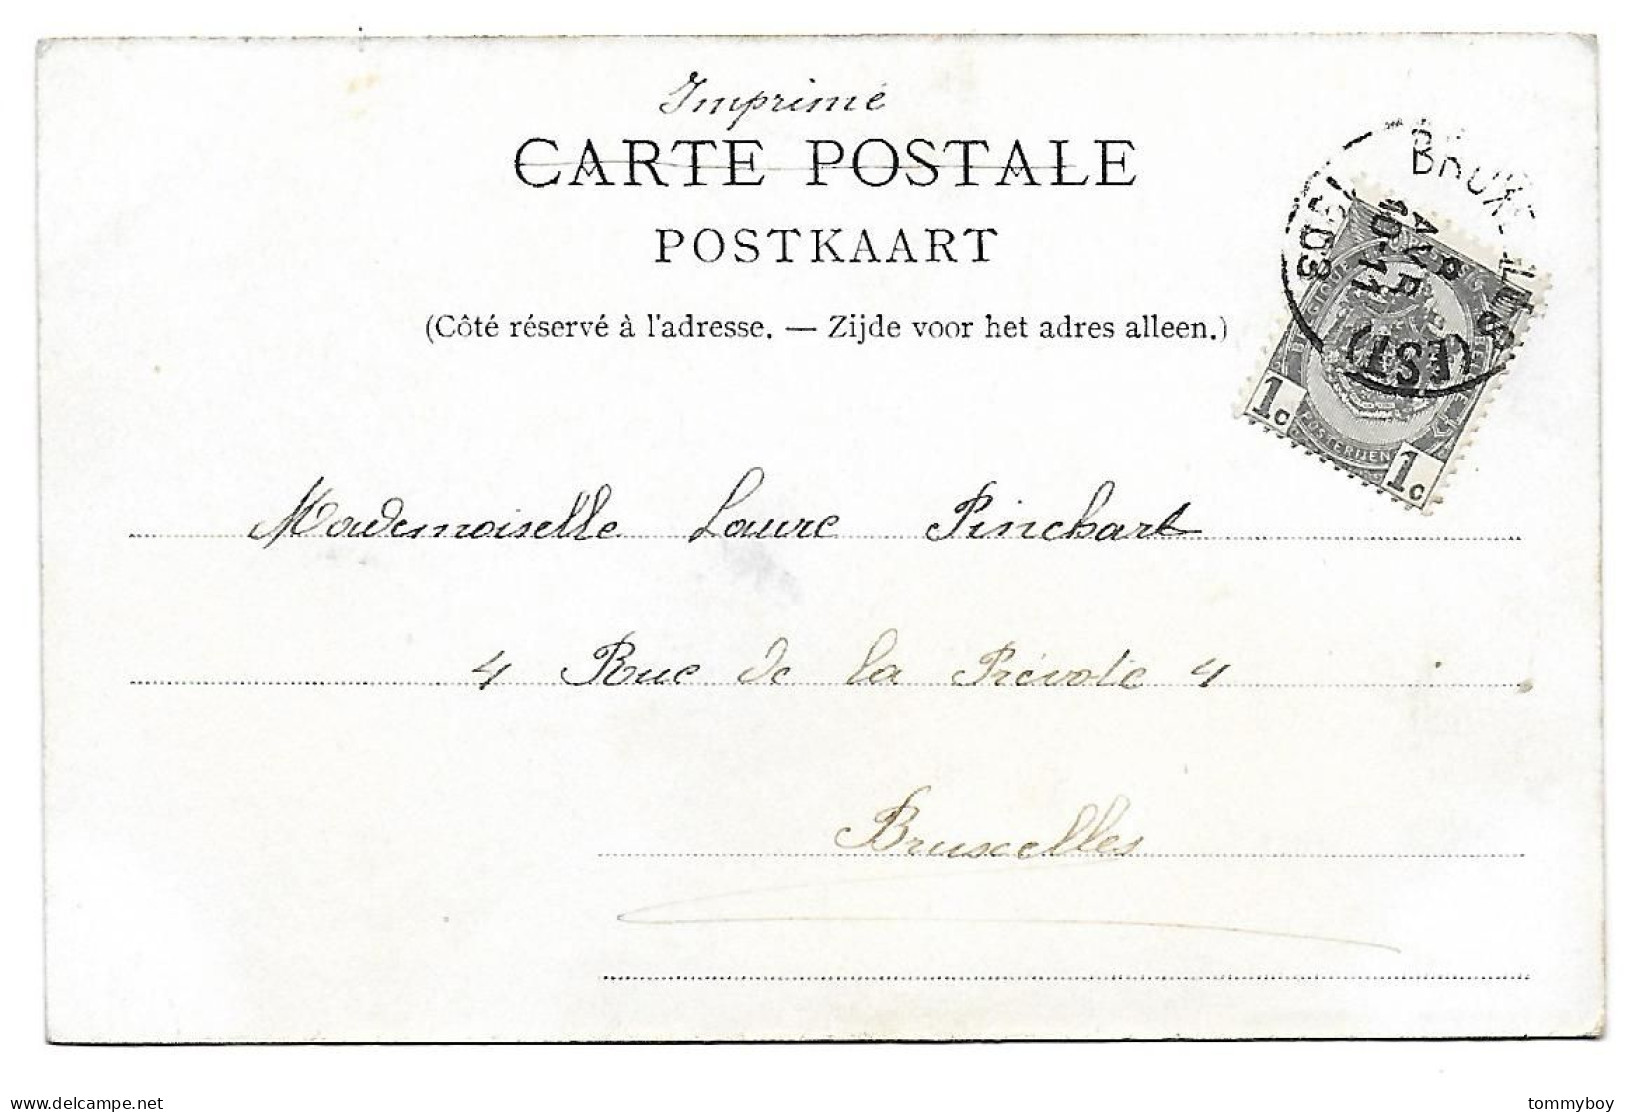 Imprimé
CARTE POSTALE
POSTKAART
(Côté réservé à l'adresse. — Zijde voor het adres alleen.)
BRUXELLES
10-11
AVR
1903
(EST)
1c
POSTERIJEN
1c
Mademoiselle Laure Pinchart
4 Rue de la Prévôté 4
Bruxelles
delcampe.net
tommyboy